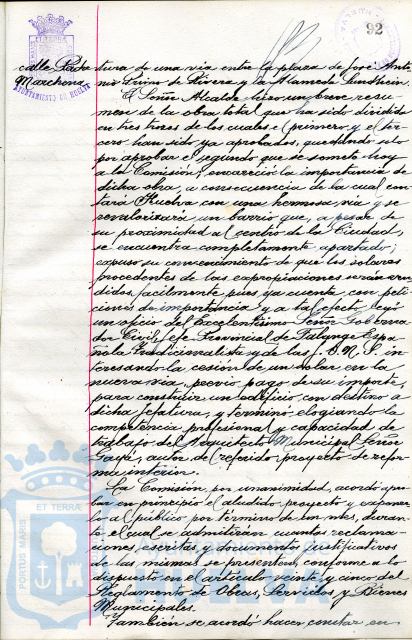 92
AYUNTAMIENTO DE HUELVA
calle Padre
Marchena.
tura de una vía entre la plaza de José Anto-
nio Primo de Rivera y la Alameda Sundheim.
El Señor Alcalde hizo un breve resu-
men de la obra total que ha sido dividida
en tres trozos de los cuales el primero y el ter-
cero han sido ya aprobados, quedando solo
por aprobar el segundo que se somete hoy
a la Comisión; encareció la importancia de
dicha obra, a consecuencia de la cual con-
tará Huelva con una hermosa vía y se
revalorizará un barrio que, a pesar de
su proximidad al centro de la Ciudad,
se encuentra completamente apartado;
expuso su convencimiento de que los solares
procedentes de las expropiaciones serán ven-
didos facilmente pues ya cuenta con peti-
ciones de importancia y a tal efecto leyó
un oficio del Excelentísimo Señor Goberna-
dor Civil, Jefe Provincial de Falange Espa-
ñola Tradicionalista y de las J.O.N.S. in-
teresando la cesión de un solar en la
nueva vía, previo pago de su importe,
para construir un edificio con destino a
dicha Jefatura, y terminó elogiando la
competencia profesional y capacidad de
trabajo del Arquitecto Municipal Señor
autor del referido proyecto de refor-
ma interior.
La Comisión, por unanimidad, acordó apro-
bar en principio el aludido proyecto y exponer-
lo al público por término de un mes, duran-
te el cual se admitirán cuantas reclama-
ciones escritas y documentos justificativos
de las mismas se presenten, conforme a lo
dispuesto en el artículo veinte y cinco del
Reglamento de Obras, Servicios y Bienes
Municipales.
También se acordó hacer constar en
PORTUS MARIS ET TERRAE